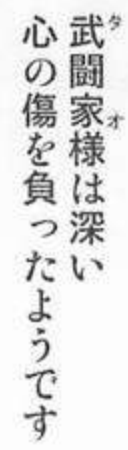 武闘家様は深い
心の傷を負ったようです
タオ